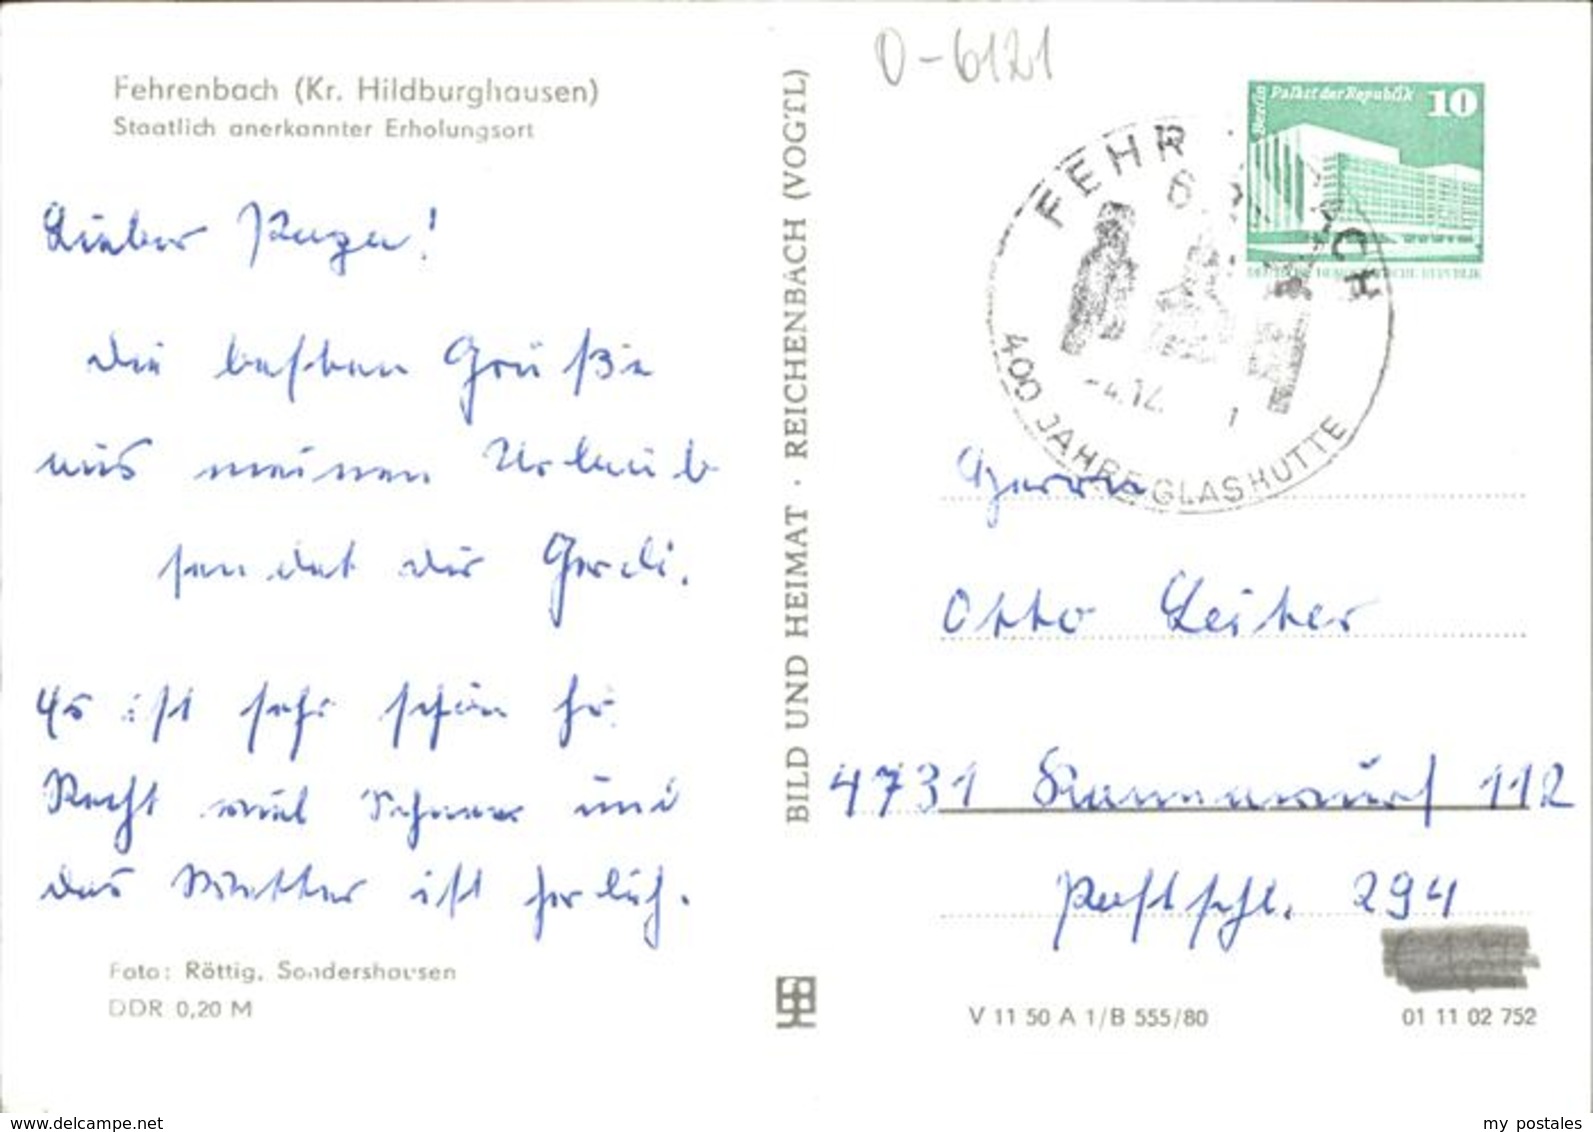 O-6121
Fehrenbach (Kr. Hildburghausen)
Staatlich anerkannter Erholungsort
Lieber
die besten Grüße
aus meinen Urlaub
sendet dir Gerdi.
Es ist sehr schön hir
Recht viel Schnee und
das Wetter ist herlich.
Foto: Röttig, Sondershausen
DDR 0,20 M
BILD UND HEIMAT · REICHENBACH (VOGTL)
Berlin Palast der Republik 10
DEUTSCHE DEMOKRATISCHE REPUBLIK
400 JAHRE GLASHÜTTE
Herrn
Otto Leiter
4731 Kannawurf 112
Postschl. 294
V 11 50 A 1/B 555/80
01 11 02 752
www.delcampe.net
my_postales